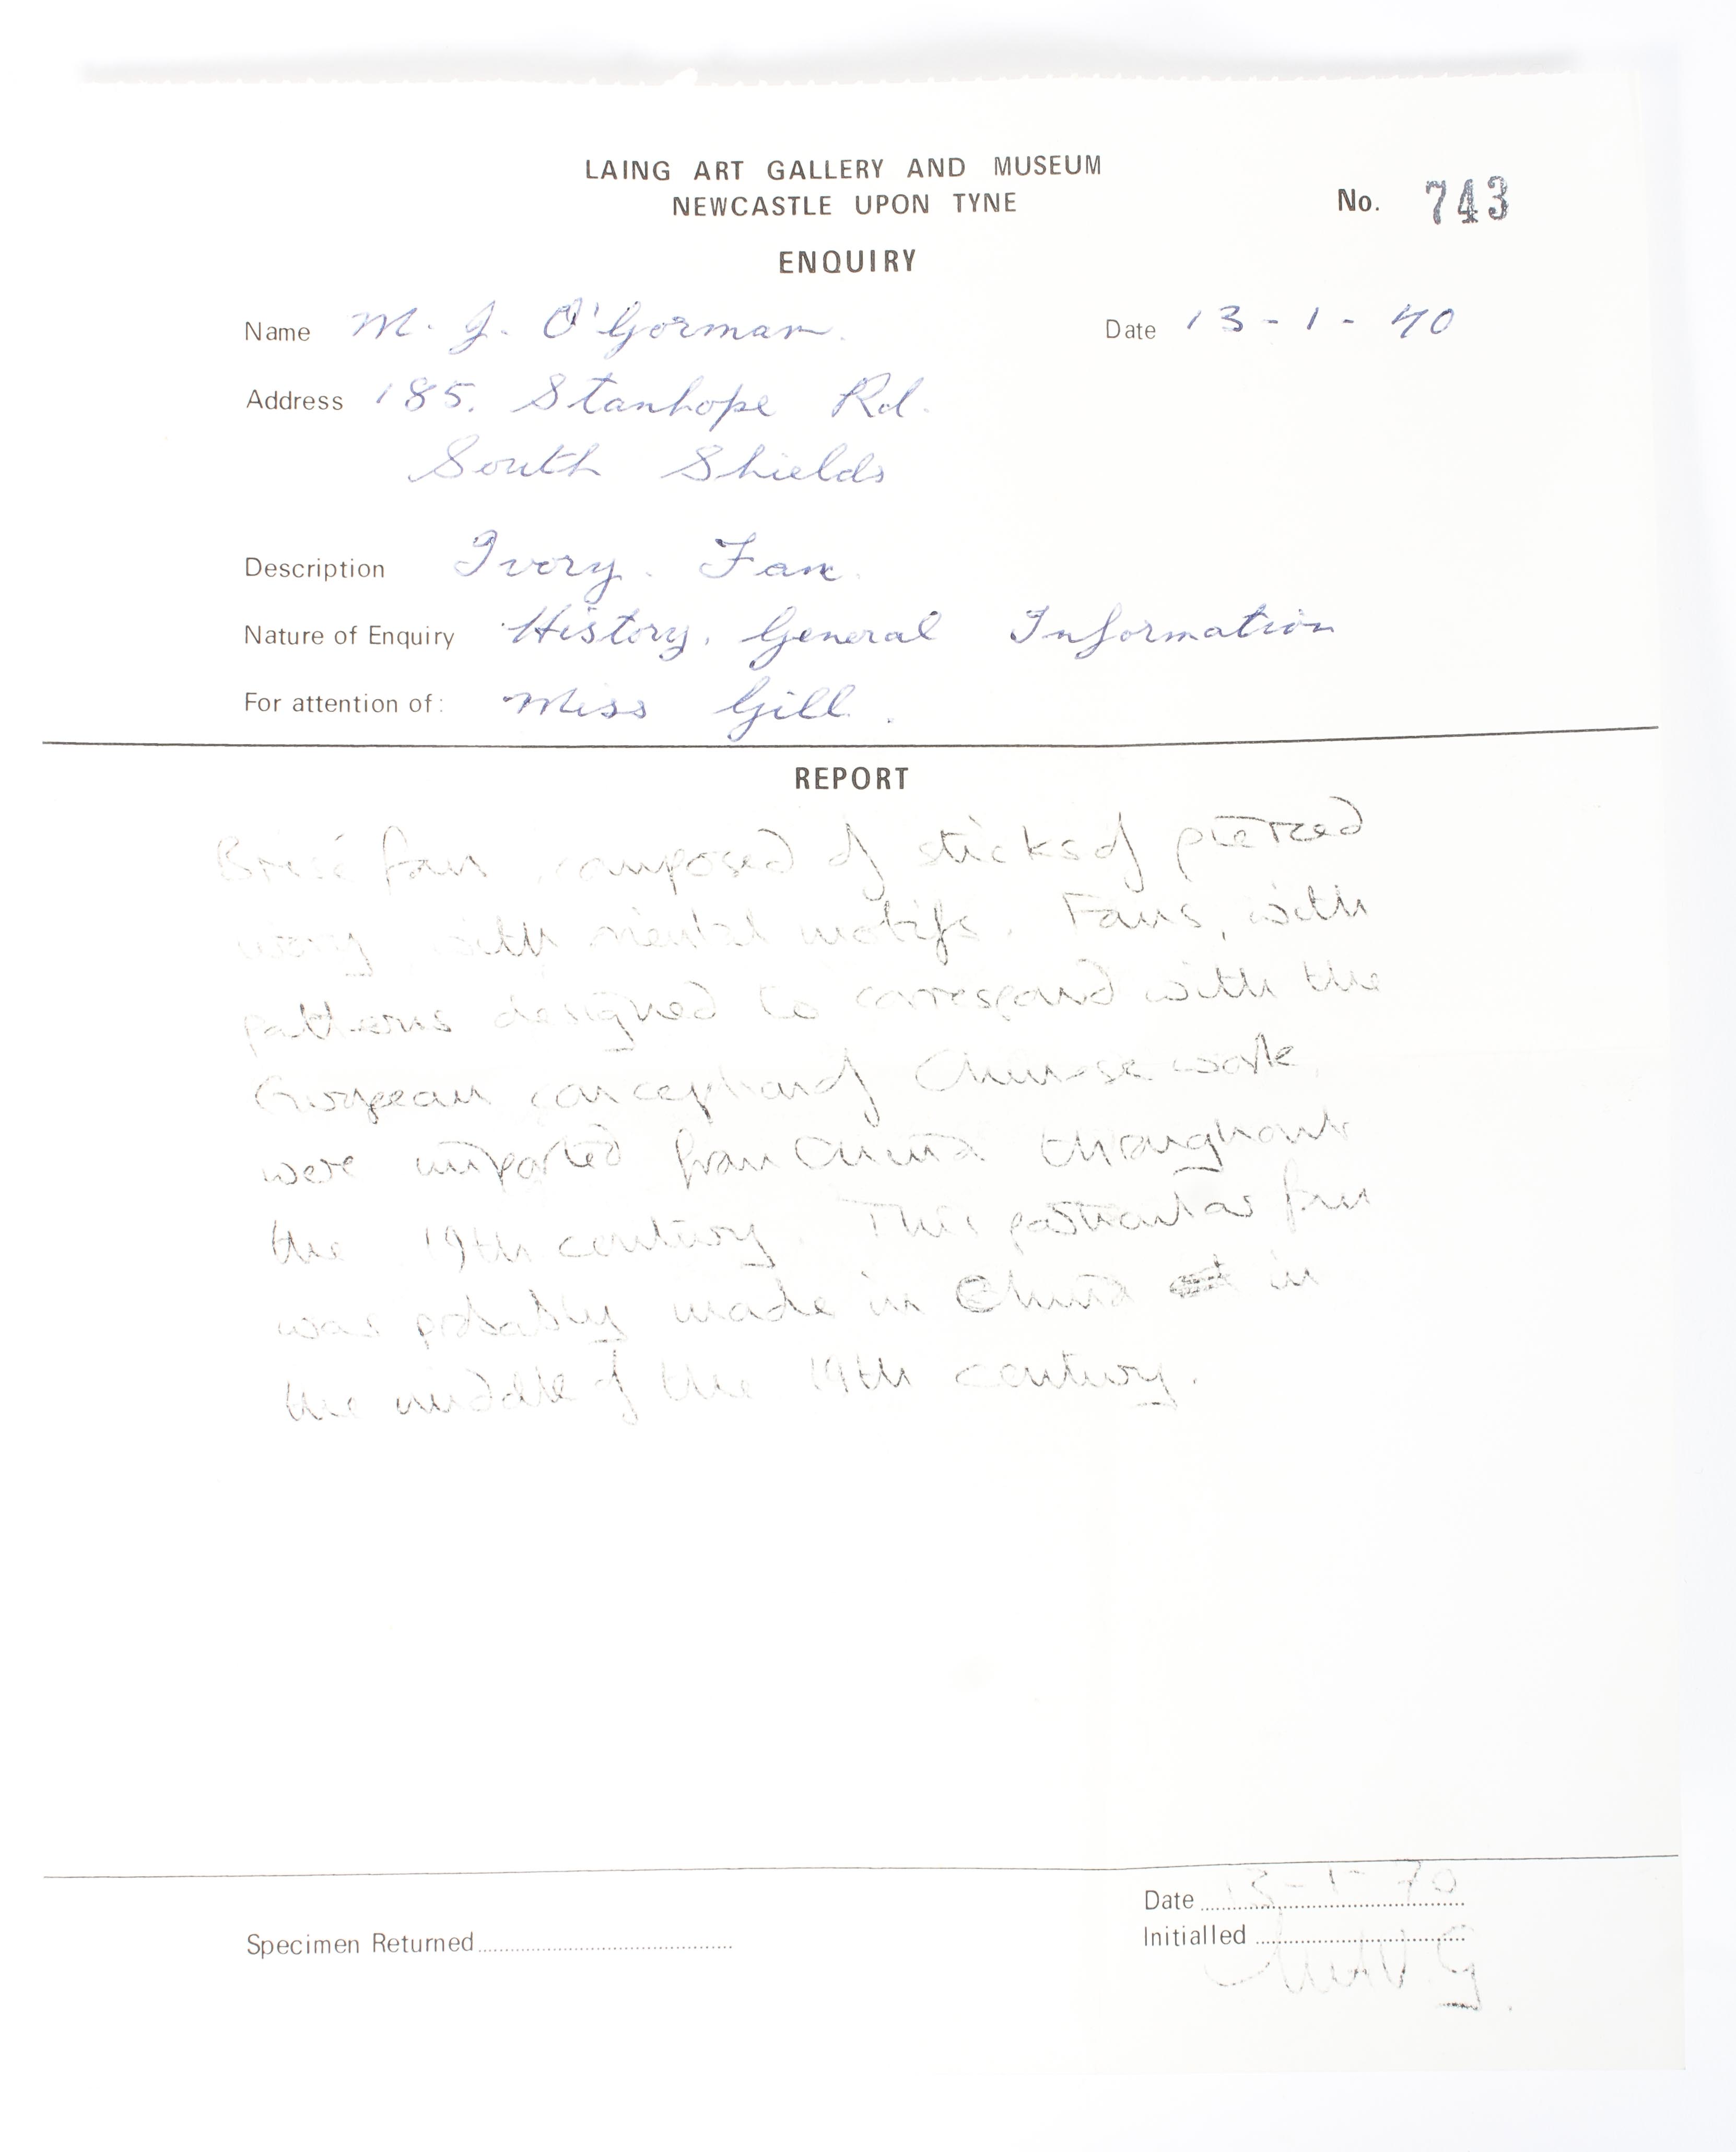 LAING ART GALLERY AND MUSEUM
NEWCASTLE UPON TYNE
No. 743
ENQUIRY
Name M. J. O'Gorman.
Date 13-1-70
Address 185, Stanhope Rd.
South Shields
Description Ivory. Fan.
Nature of Enquiry History, General Information
For attention of: Miss Gill.
REPORT
Brisé fan, composed of sticks of pierced
ivory with oriental motifs. Fans, with
patterns designed to correspond with the
European conception of Chinese work,
were imported from China throughout
the 19th century. This particular fan
was probably made in China in
the middle of the 19th century.
Date 13-1-70
Specimen Returned
Initialled